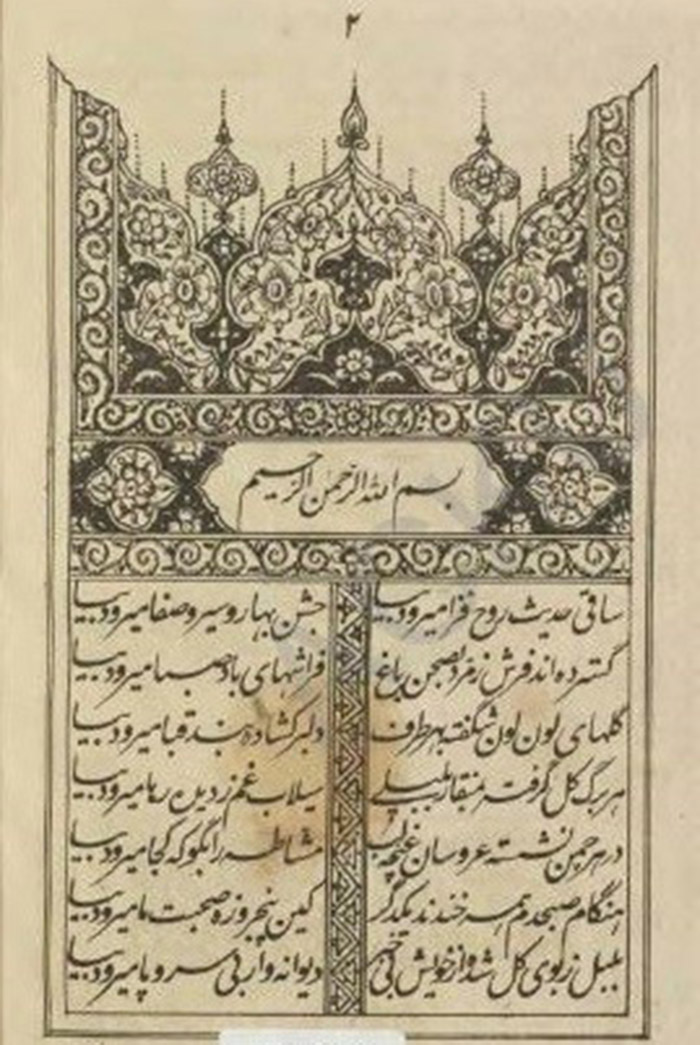 ٢
بسم الله الرحمن الرحیم
ساقی حدیث روح فزا میرود بیا جشن بهار و سیر و صفا میرود بیا
گسترده اند فرش زمرد بصحن باغ فراشهای باد صبا میرود بیا
گلهای لون لون شگفته بهر طرف دلبر کشاده بند قبا میرود بیا
هر برگ گل گرفته بمنقار بلبلے سیلاب غم ز میرود بیا
در هر چمن نشسته عروسان غنچه لب مشاطه را بگو که کجا میرود بیا
هنگام صبحدم همه خندند یکدگر کین پنجروزه صحبت ما میرود بیا
بلبل ز بوی گل شده از خویش بی خبر دیوانه وار بی سر و پا میرود بیا